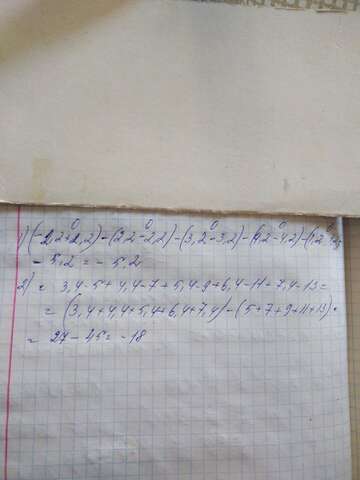 1) (-2,2+2,2)-(2,2-2,2)-(3,2-3,2)-(4,2-4,2)-
- 5,2 = - 5,2
2) = 3,4-5+4,4-7+5,4-9+6,4-11+7,4-13=
= (3,4+4,4+5,4+6,4+7,4)-(5+7+9+11+13)=
= 27-45=-18